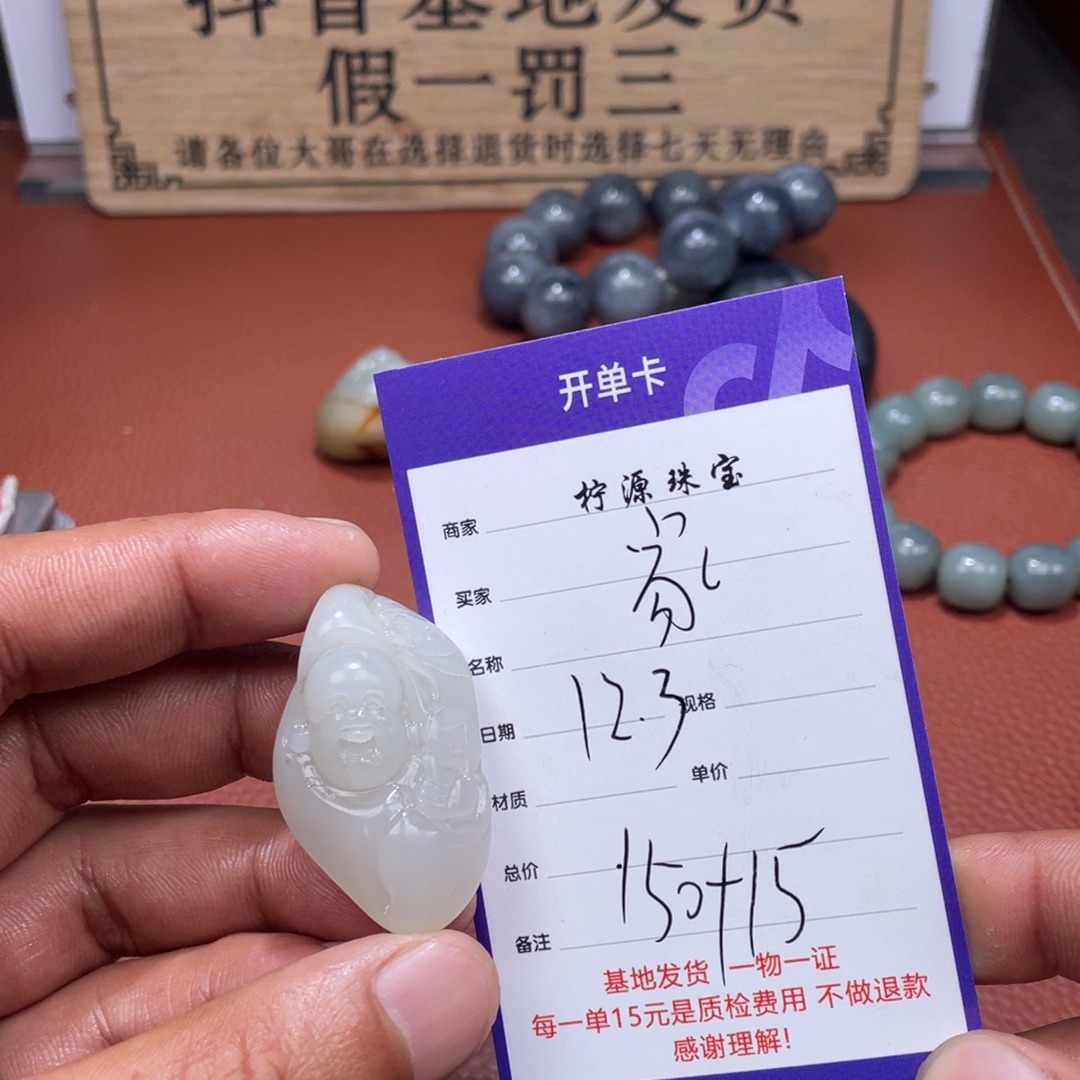 抖音基地发货
假一罚三
请各位大哥在选择退货时选择七天无理由
开单卡
商家 柠源珠宝
买家
名称
日期 12.3 规格
材质 单价
总价 150+15
备注
基地发货 一物一证
每一单15元是质检费用 不做退款
感谢理解!